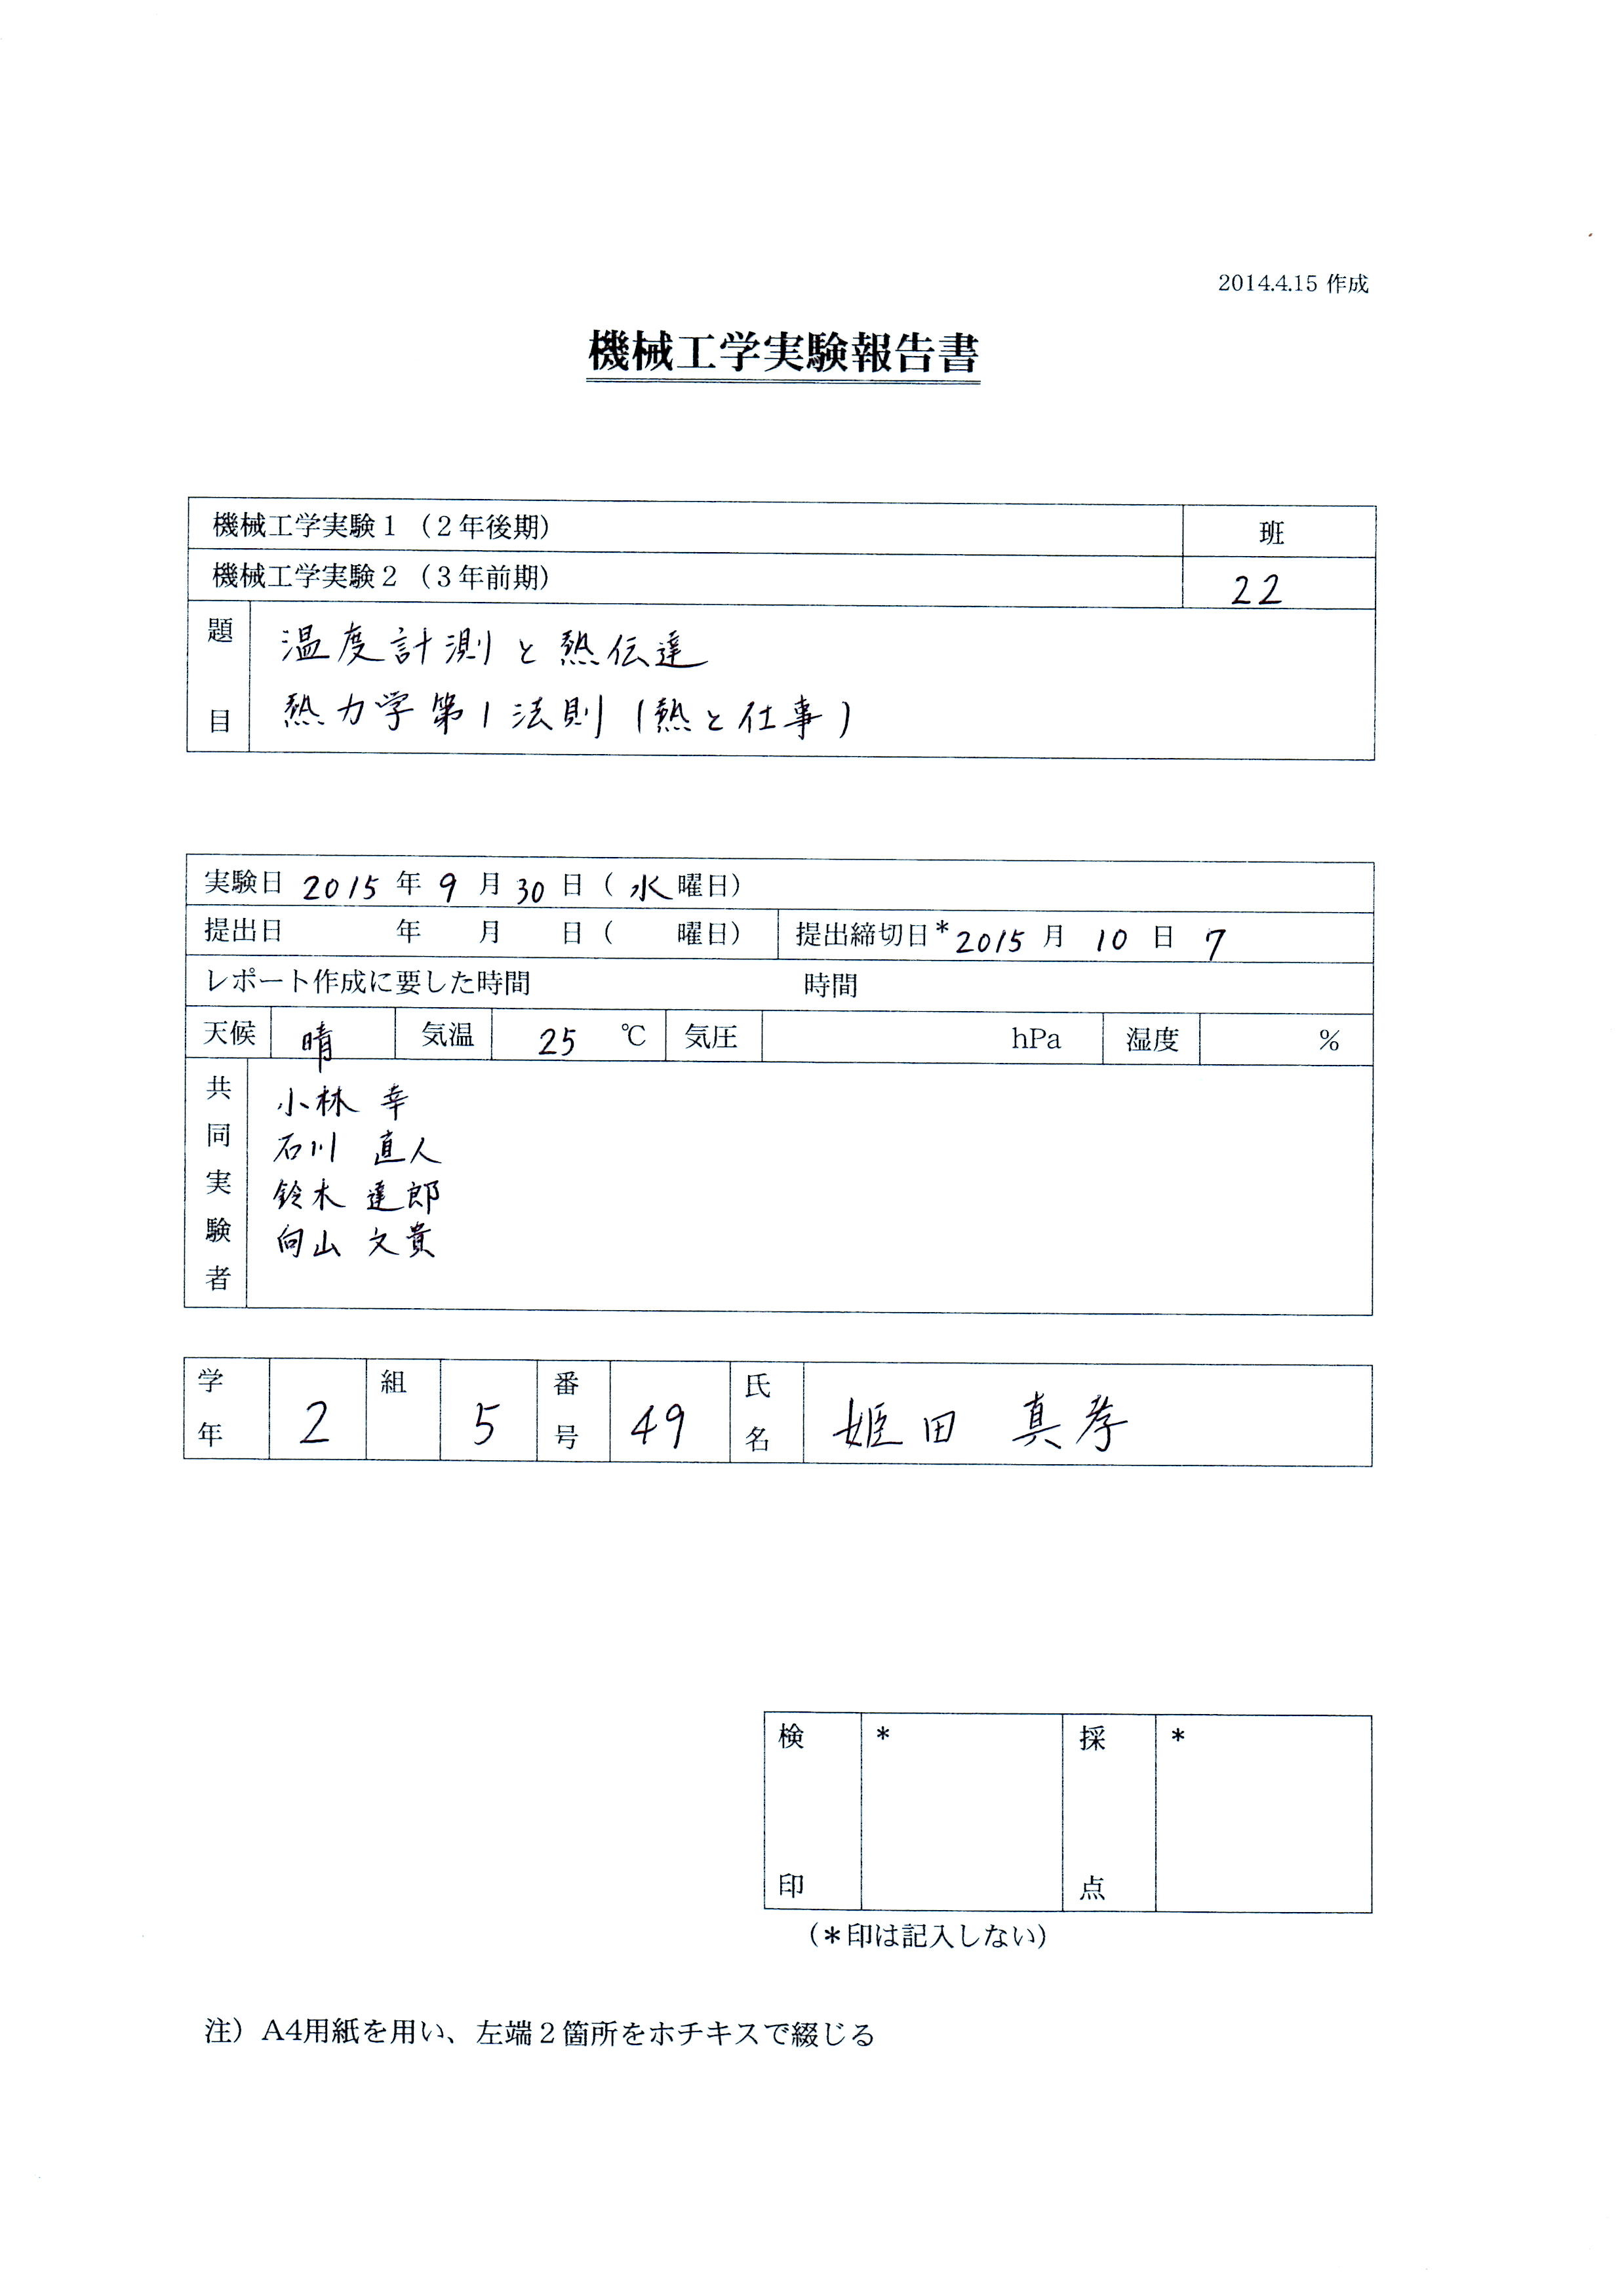 2014.4.15 作成
機械工学実験報告書
機械工学実験1（2年後期） 班
機械工学実験2（3年前期） 22
題目 温度計測と熱伝達
熱力学第1法則（熱と仕事）
実験日 2015 年 9 月 30 日（水曜日）
提出日 年 月 日（ 曜日） 提出締切日* 2015 月 10 日 7
レポート作成に要した時間 時間
天候 晴 気温 25 ℃ 気圧 hPa 湿度 %
共同実験者 小林 幸
石川 直人
鈴木 達郎
向山 文貴
学年 2 組 5 番号 49 氏名 姫田 真孝
検印 * 採点 *
（*印は記入しない）
注）A4用紙を用い、左端2箇所をホチキスで綴じる